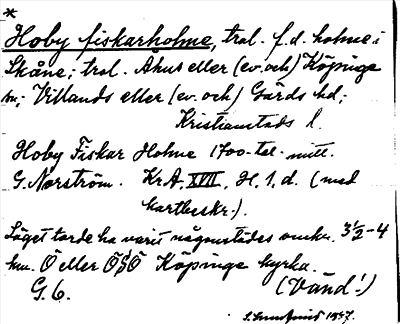 *
Hoby fiskarholme, trol. f.d. holme i
Skåne; trol. Åhus eller (ev. och) Köpinge
sn; Villands eller (ev. och) Gärds hd;
Kristianstads l.
Hoby Fiskar Holme 1700-tal. mitt.
G. Norström. Kr.A. XVII, H. 1, d. (med
kartbeskr.).
Läget torde ha varit någonstädes omkr. 3½-4
km. Ö eller ÖSÖ Köpinge kyrka.
G. 6. (Vänd!)
1957.